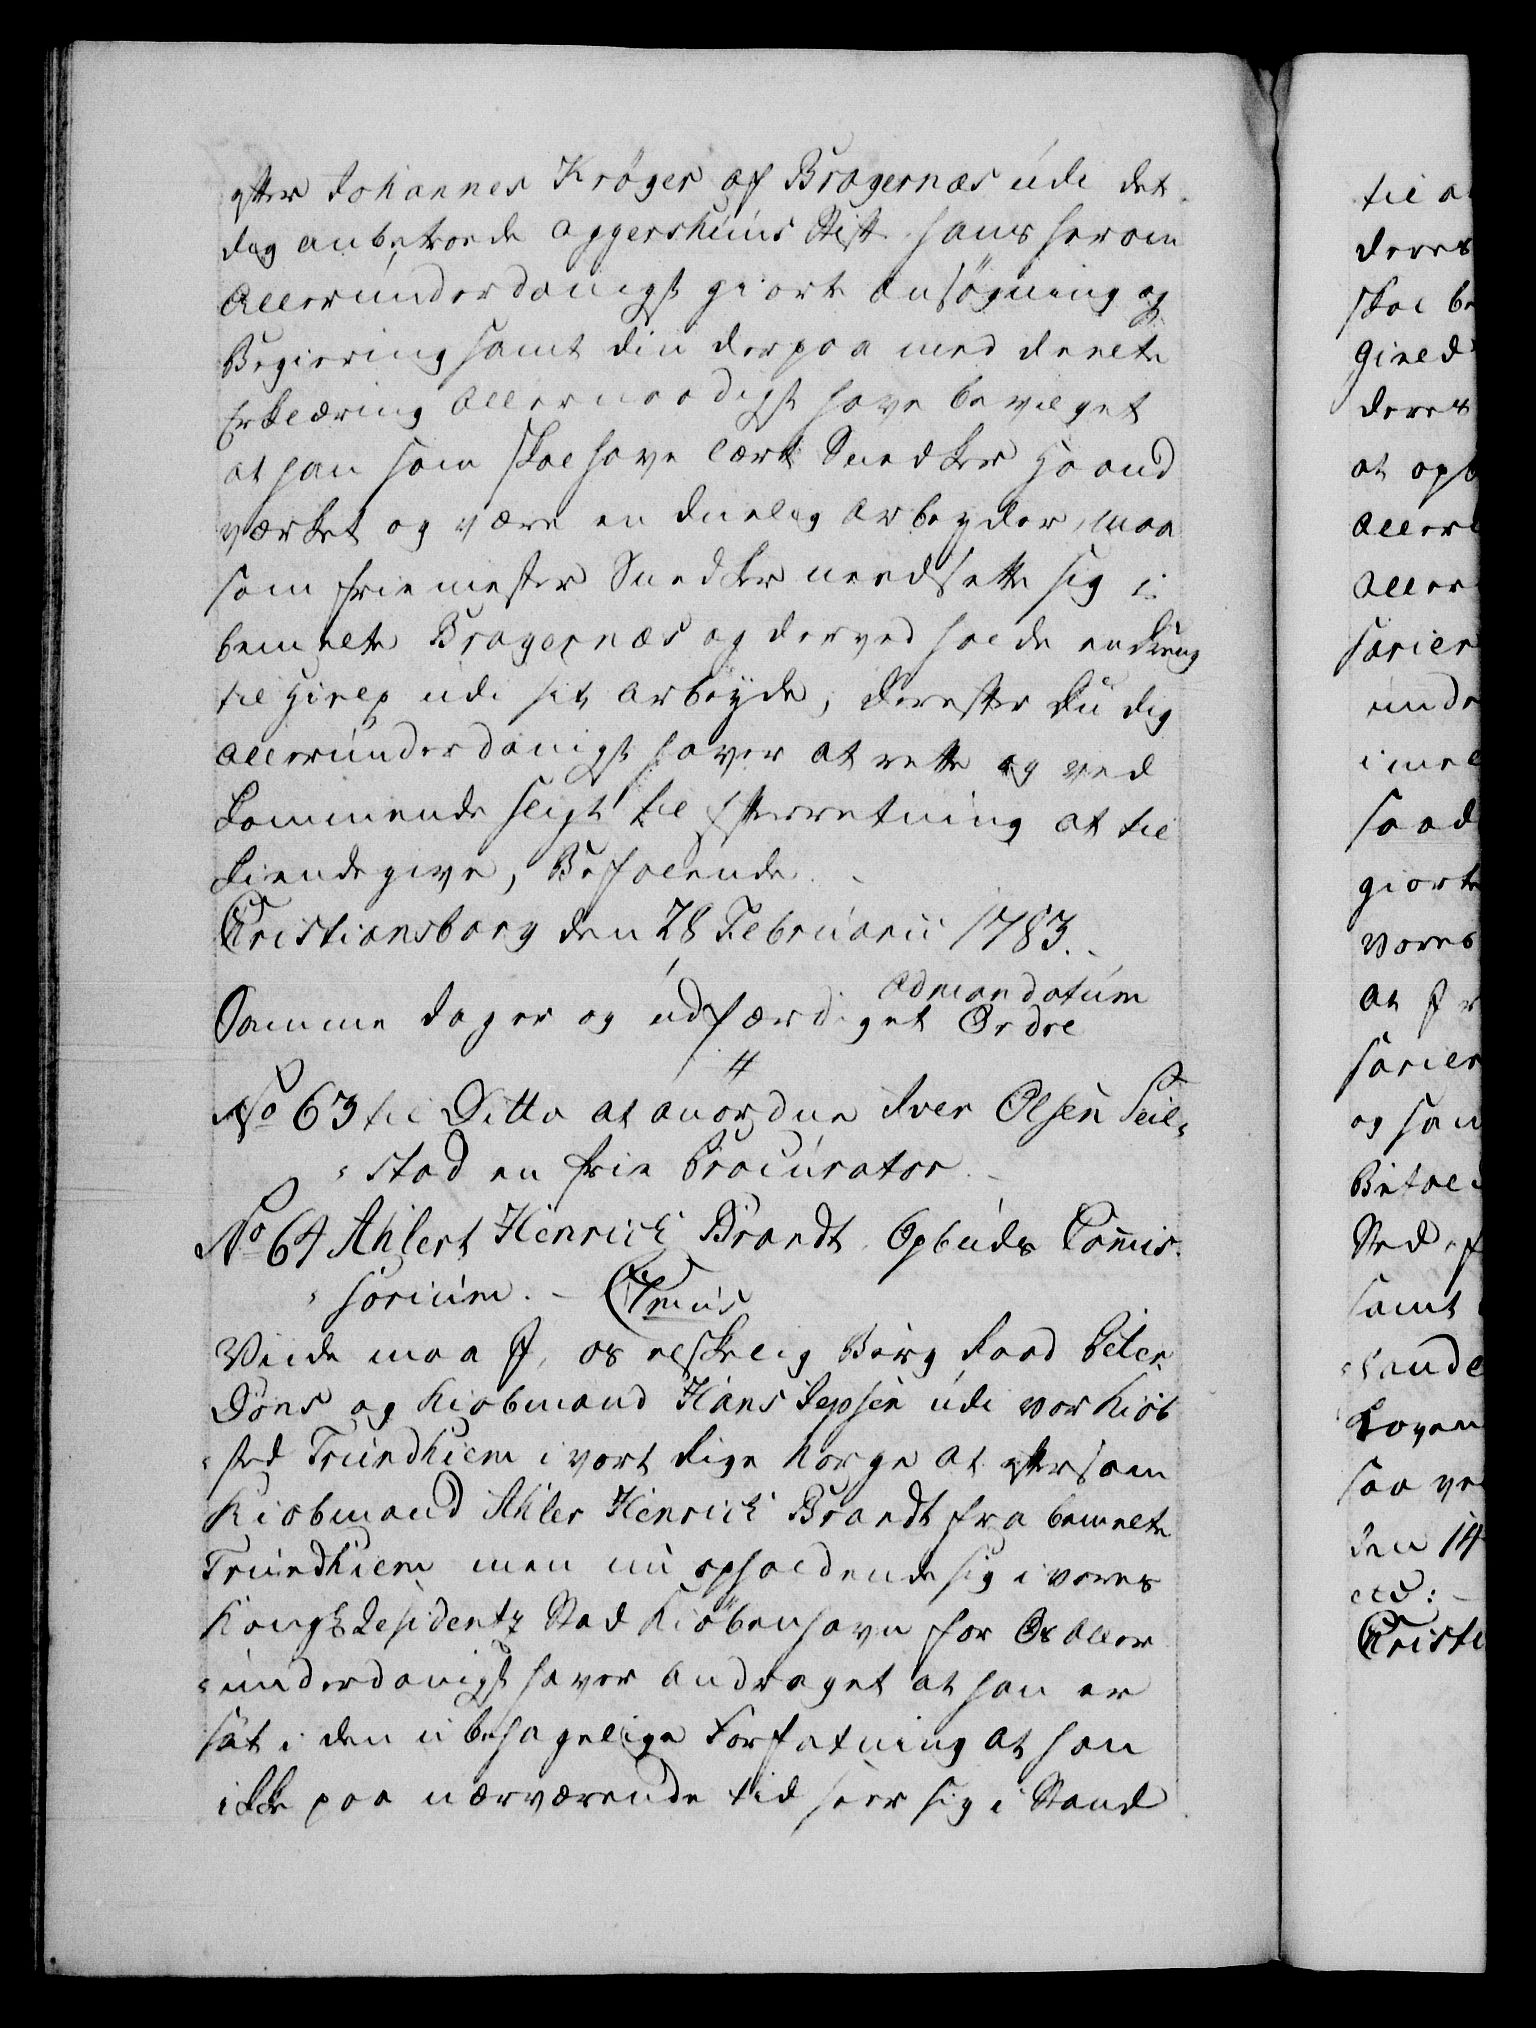 efter Johannes Krøger af Bragernæs udi det
dig anbetroede Aggershuus Stift hans herom
Allerunderdanigst giorte Ansøgning og
Begiering samt din derpaa med deelte
Erklæring Allernaadigst have bevilget
at han som skal have lært Snedker Haand
værket og være en duelig Arbeyder, maa
som frie mester Snedker needsette sig i
bemelte Bragernæs og derved holde en dreng
til Hielp udi sit Arbeyde; derefter Du dig
allerunderdanigst haver at rette og ved
kommende sligt til Efterretning at til
kiendegive, Befalende.
Christiansborg den 28 Februarii 1783.
Admandatum
Samme Dag er og udfærdiget Ordre
No 63 til Ditto at anordne Iver Olsen Seil-
stad en frie Procurator.
No 64 Ahlert Henrich Brandt Opbuds Commis-
sorium. – C 7mus
Viide maa I, os elskelig Borg Raad Peter
Døns og Kiøbmand Hans Jepsen udi vor Kiøb
sted Trundhiem i vort Rige Norge at eftersom
Kiøbmand Ahler Henrich Brandt fra bemelte
Trundhiem men nu opholdende sig i vores
Kongl Residentz Stad Kiøbenhavn for Os Aller
underdanigst haver andraget at han er
sat i den ubehagelige Forfatning at han
ikke paa nærværende tid seer sig i Stand
til a
deres
skal be
Gield
deres
at opb
Aller
Aller
sorier
unde
imel
saad
giorte
vores
at I
sorier
og san
Befale
Sted
samt
lande
Loven
saa ve
den 14
etc:
Christi